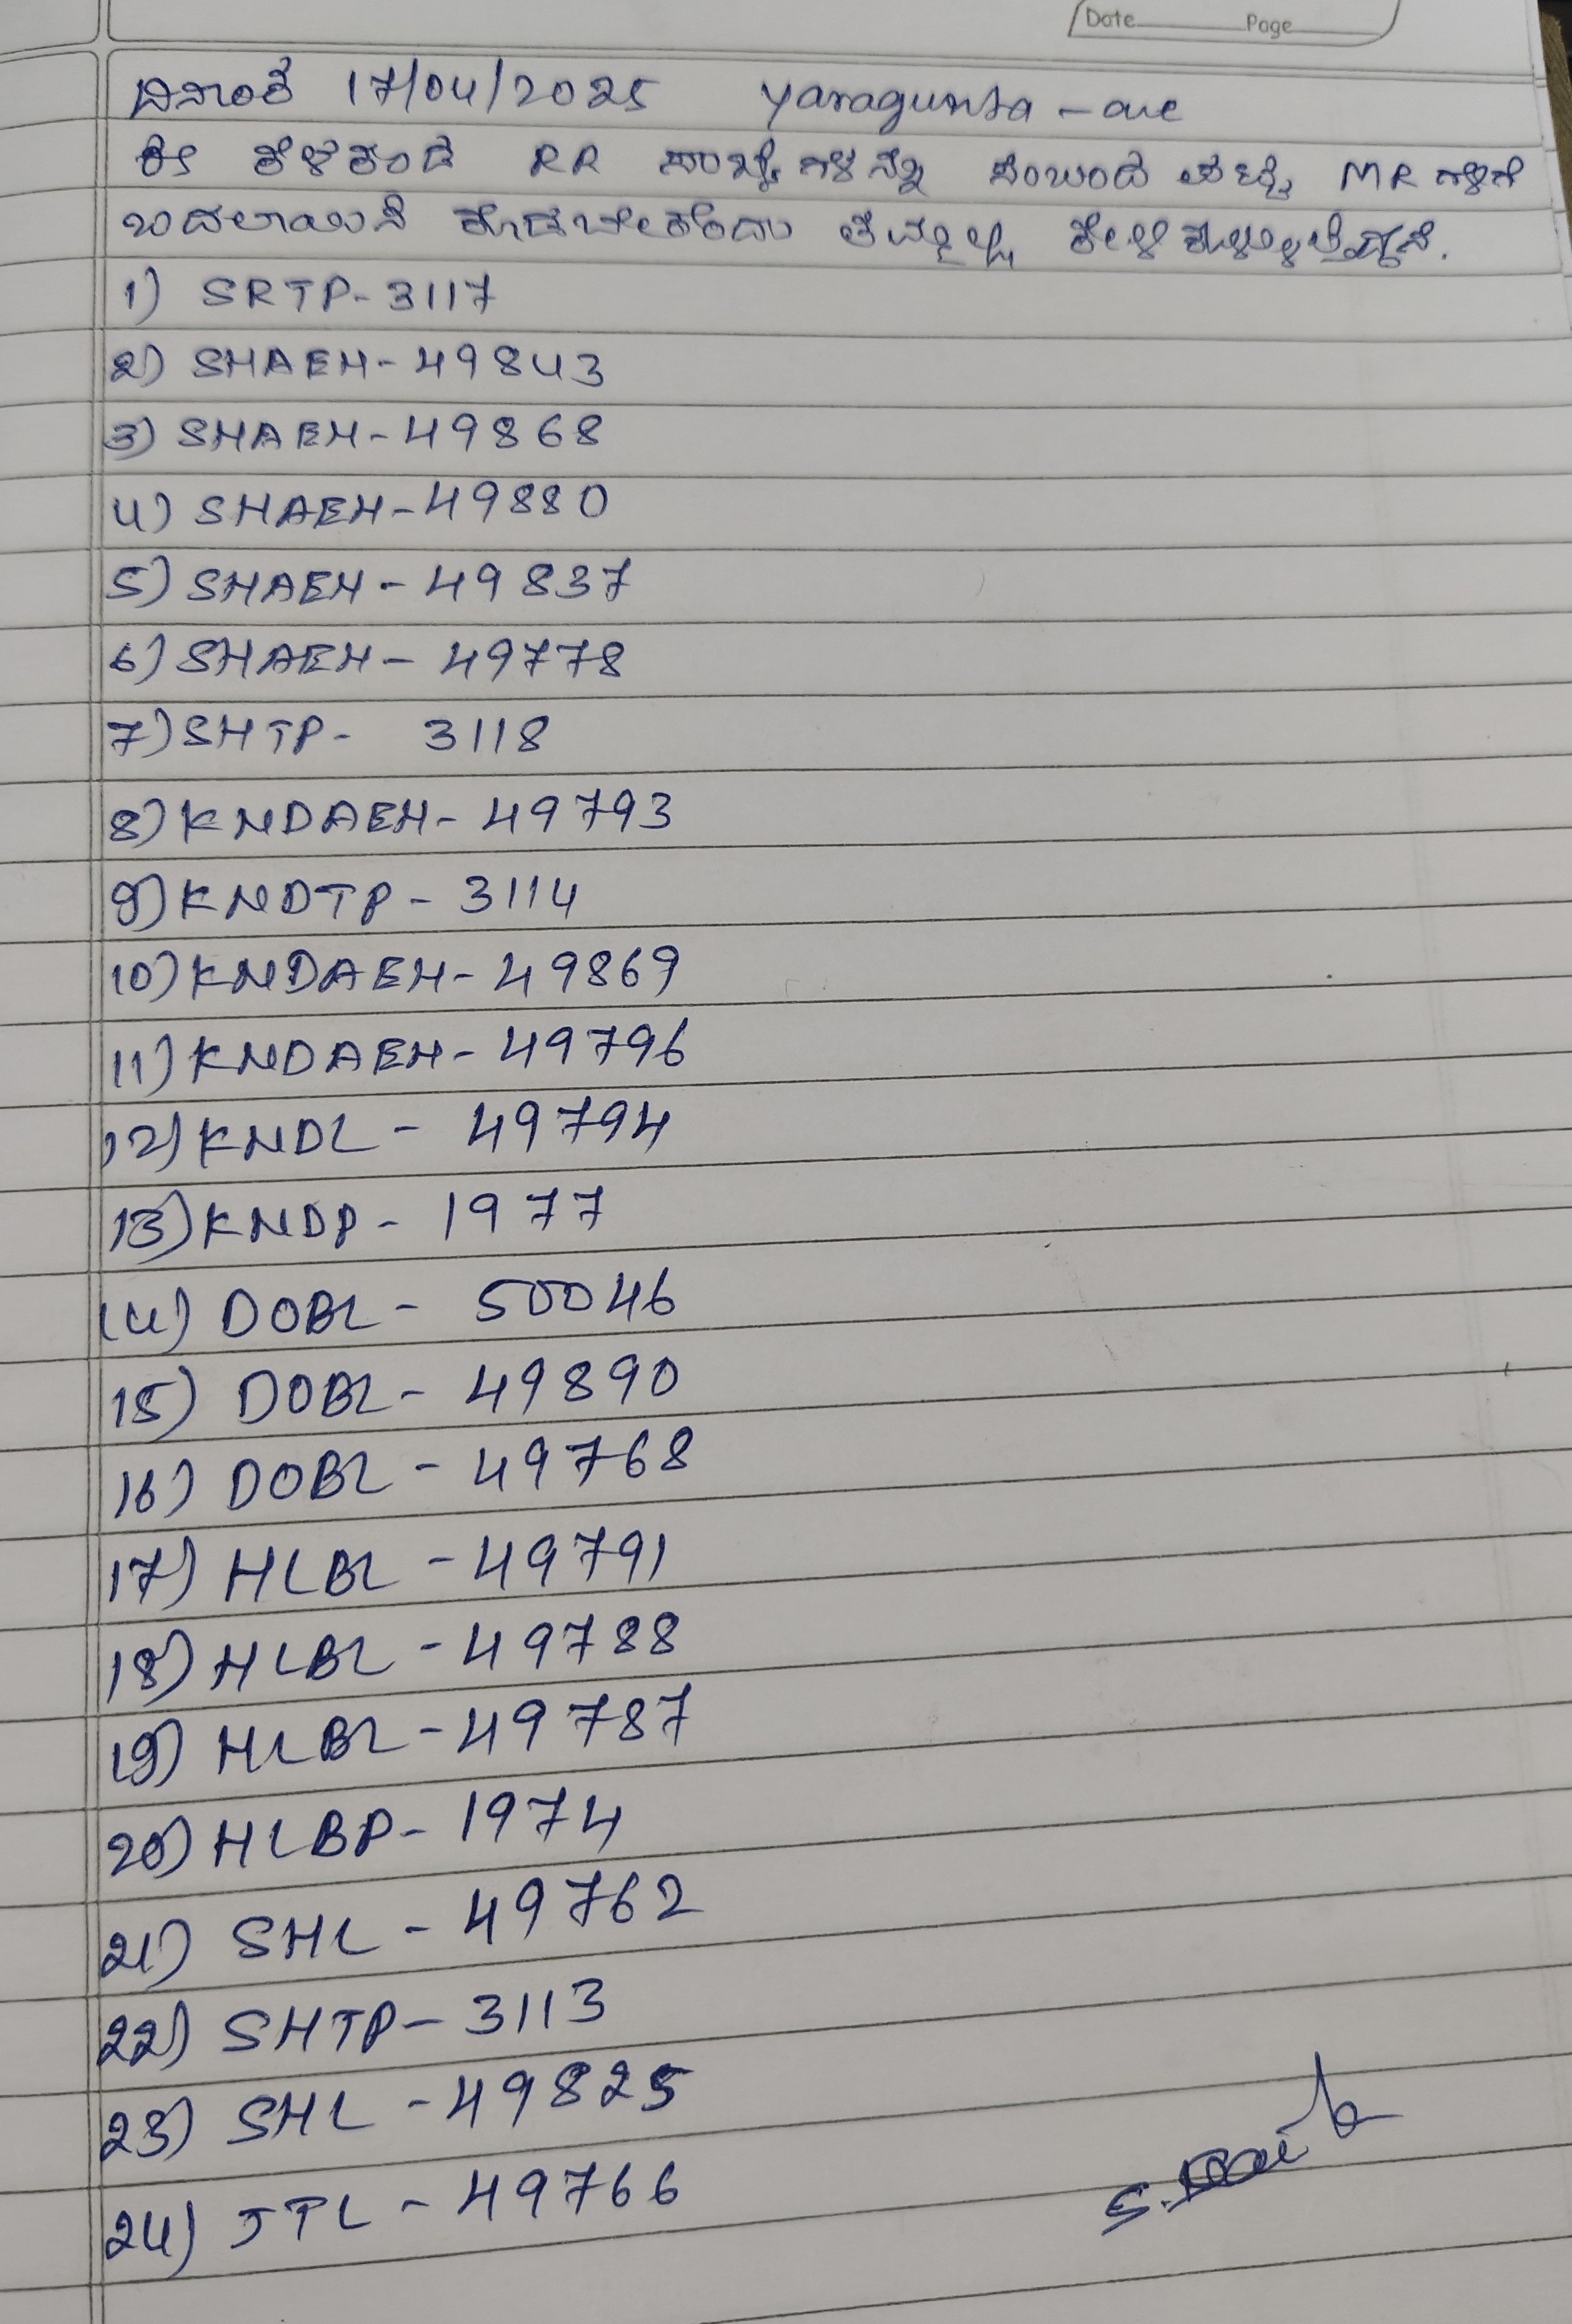 Date Page
ದಿನಾಂಕ 17/04/2025 Yaragunta -
ಈ ಕೆಳಕಂಡ RR ಸಂಖ್ಯೆಗಳನ್ನು ಸಂಬಂದ ಪಟ್ಟ MR ಗಳಿಗೆ
ಬದಲಾಯಿಸಿ ಕೊಡಬೇಕೆಂದು ತಮ್ಮಲ್ಲಿ ಕೇಳಿಕೊಳ್ಳುತ್ತಿದ್ದೇನೆ.
1) SRTP-3117
2) SHAEH-49843
3) SHAEH-49868
4) SHAEH-49880
5) SHAEH-49837
6) SHAEH-49778
7) SHTP- 3118
8) KNDAEH-49793
9) KNDTP-3114
10) KNDAEH-49869
11) KNDAEH-49796
12) KNDL - 49794
13) KNDP-1977
14) DOBL - 50046
15) DOBL - 49890
16) DOBL - 49768
17) HLBL - 49791
18) HLBL - 49788
19) HLBL - 49787
20) HLBP-1974
21) SHL - 49762
22) SHTP-3113
23) SHL - 49825
24) JTL - 49766